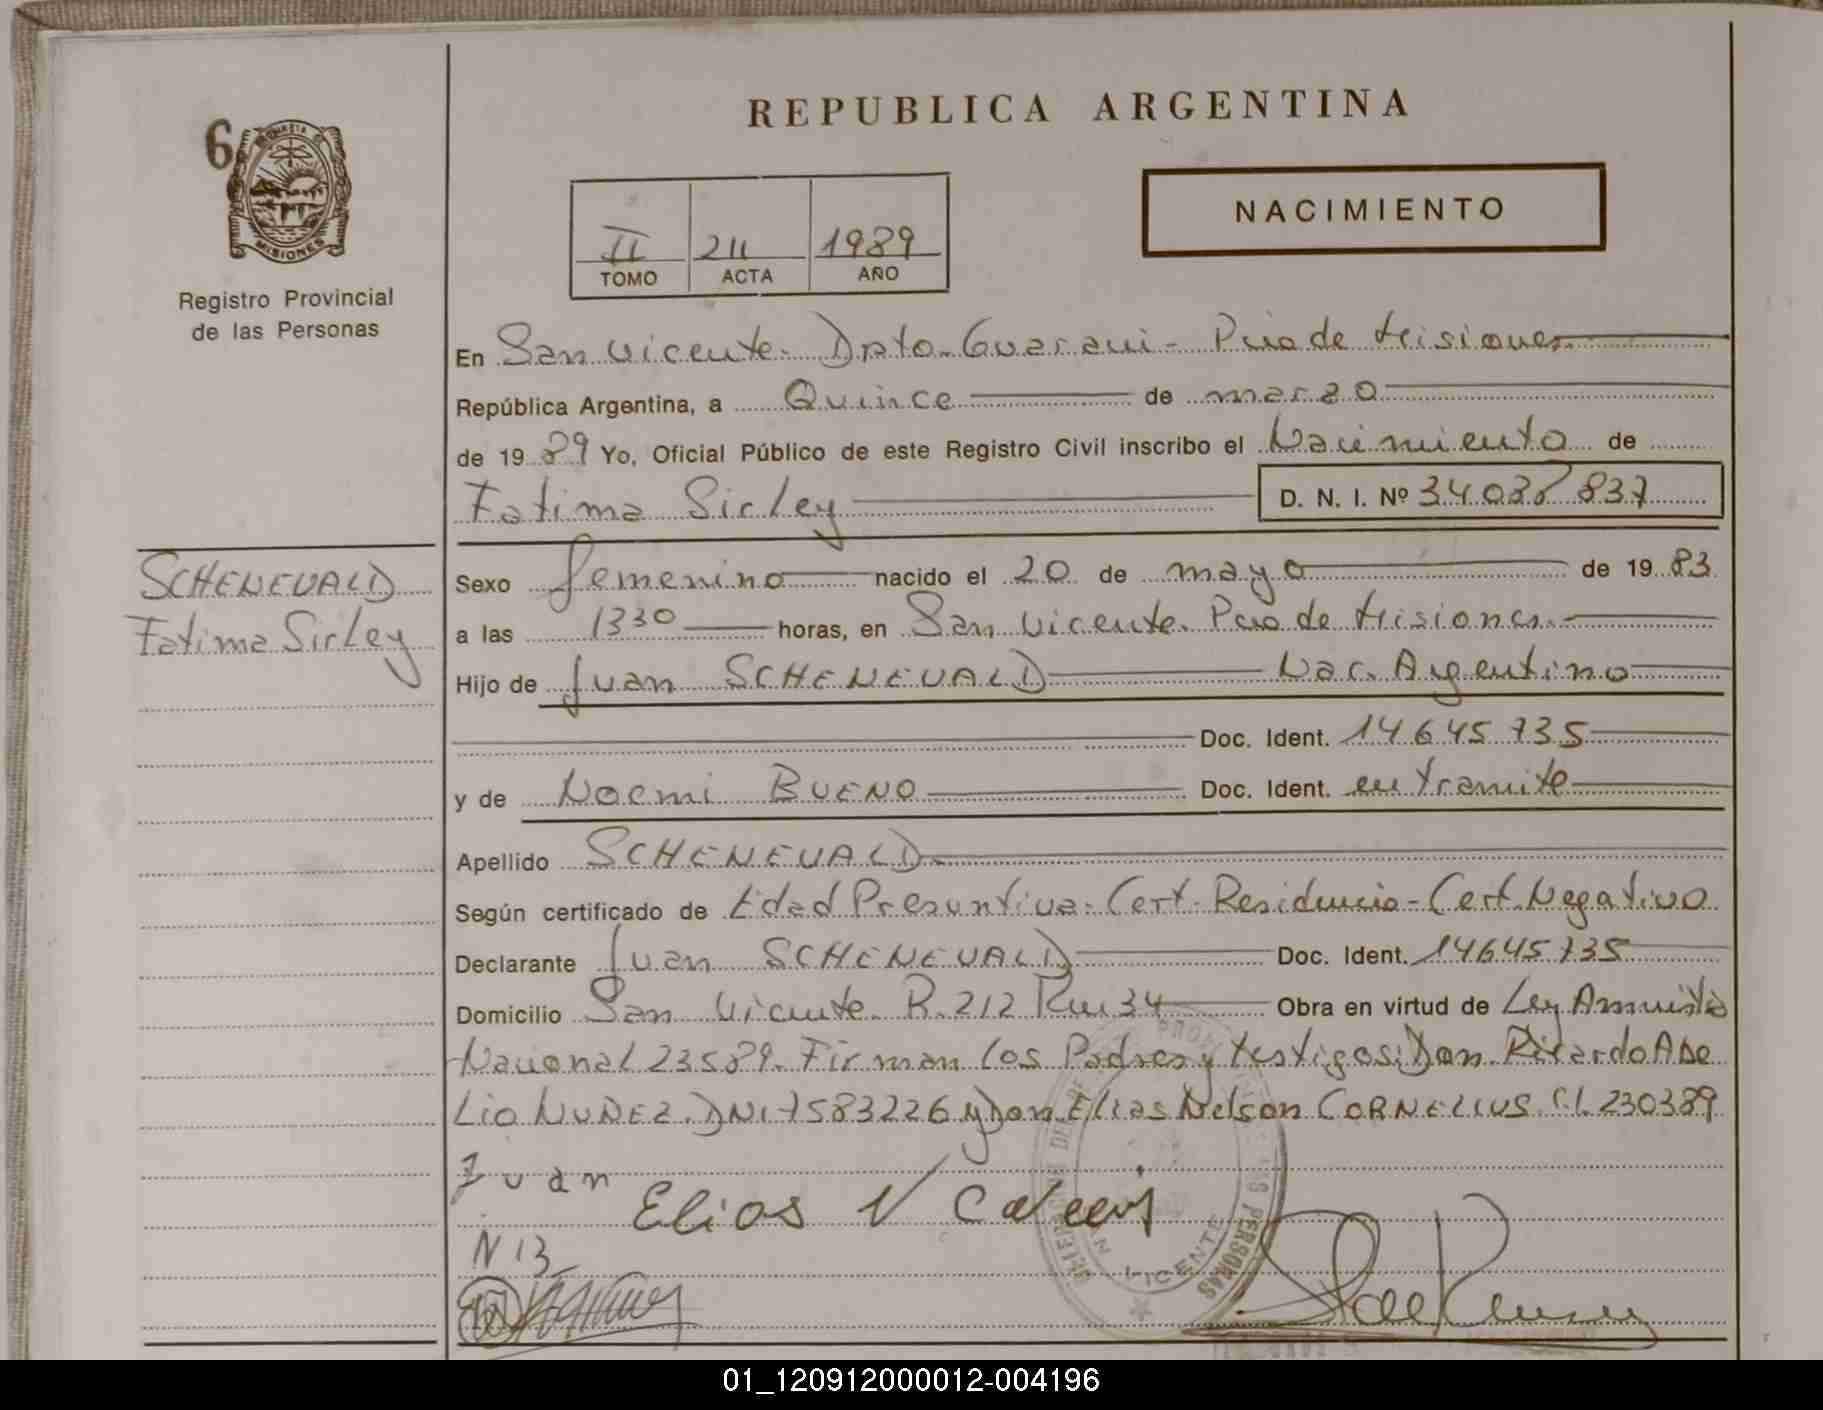 REPUBLICA ARGENTINA
6
MISIONES
Registro Provincial
de las Personas
NACIMIENTO
II 211 1989
TOMO ACTA AÑO
En San Vicente. Dpto. Guarani - Pcia de Misiones
República Argentina, a Quince de marzo
de 19 89 Yo, Oficial Público de este Registro Civil inscribo el Nacimiento de
Fatima Sirley D. N. I. Nº 34038 837
SCHENEVALD
Fatima Sirley
Sexo femenino nacido el 20 de mayo de 19 83
a las 1330 horas, en San Vicente. Pcia de Misiones.
Hijo de Juan SCHENEVALD Nac. Argentino
Doc. Ident. 14645735
y de Noemi BUENO Doc. Ident. en tramite
Apellido SCHENEVALD
Según certificado de Edad Presuntiva. Cert. Residencia - Cert. Negativo
Declarante Juan SCHENEVALD Doc. Ident. 14645735
Domicilio San Vicente. R. 212 Km 34 Obra en virtud de Ley Amnistia
Nacional 23589. Firman los Padres y testigos: Don Ricardo Abe
Lio NUÑEZ. DNI 7583226 y Don Elias Nelson CORNELIUS C.I. 230389
Juan
Elias N
N 13
SAN VICENTE
PERSONAS
01_120912000012-004196